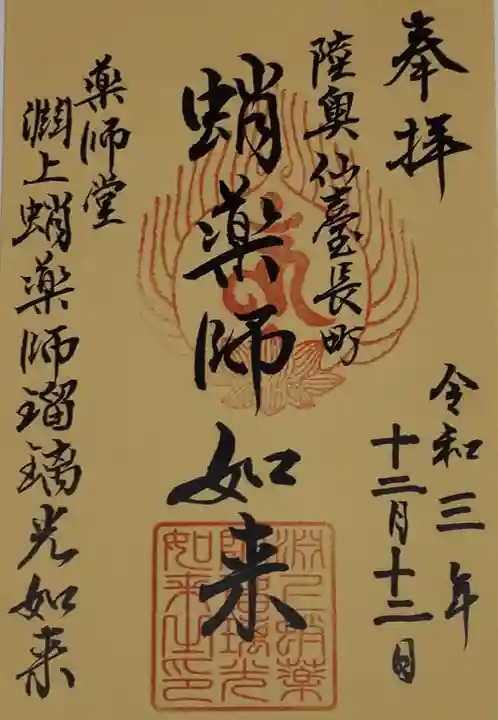 奉拝
令和三年
十二月十二日
陸奥仙臺長町
蛸薬師如来
薬師堂
渕上蛸薬師瑠璃光如来